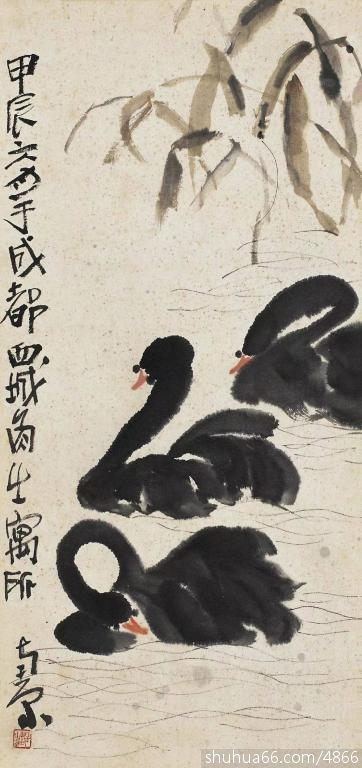 甲辰六月于成都西城角之寓所
南原
shuhua66.com/4866